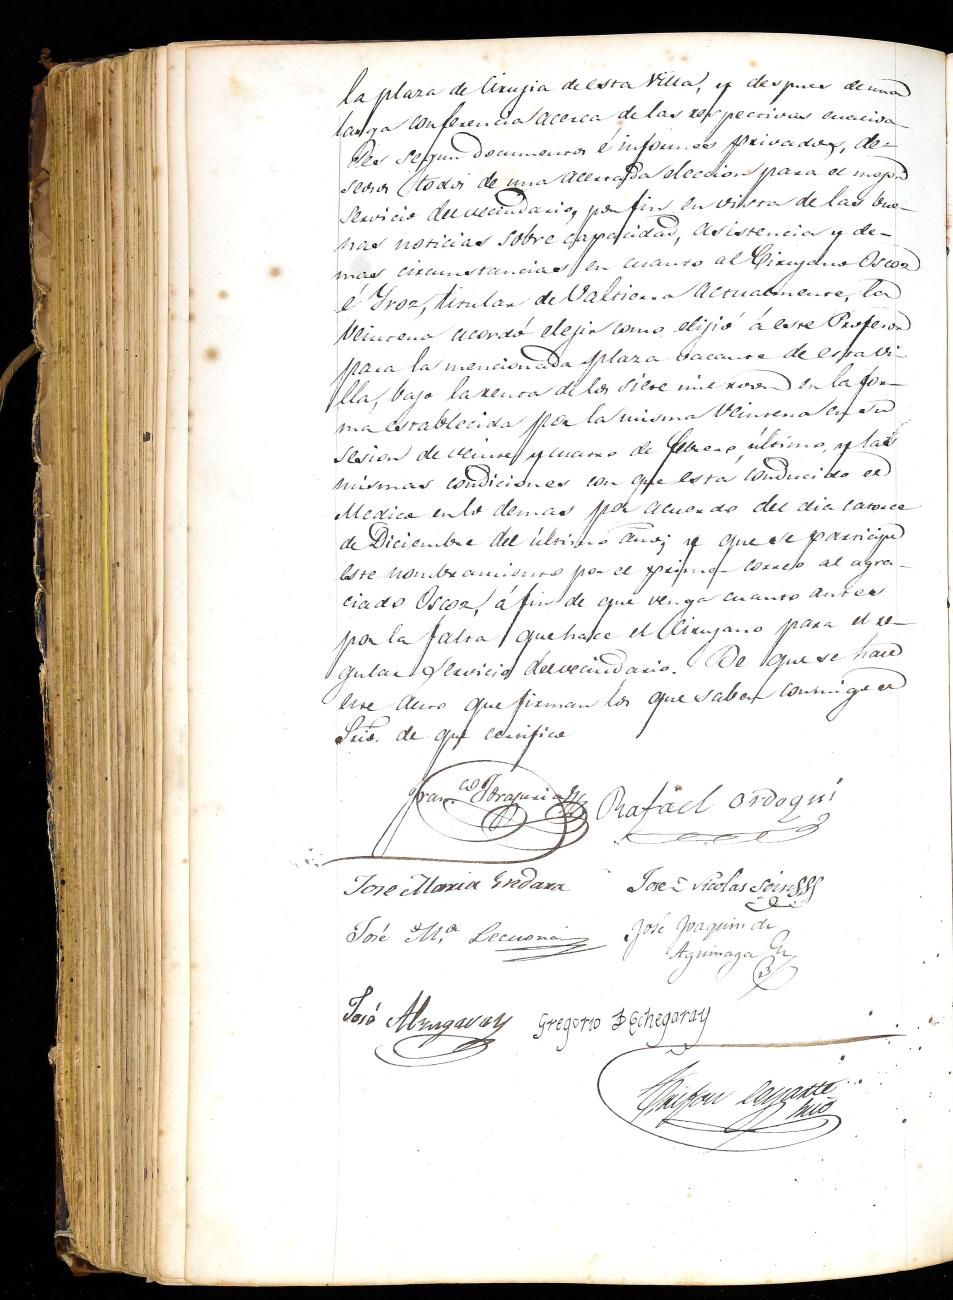 la plaza de Cirujia de esta Villa, y despues de una
larga conferencia acerca de las respectivas cuesıda-
des segun documentos é informes privados, de-
seosos todos de una acertada eleccion para el mejor
servicio del vecindario, por fin en vista de las bue-
nas noticias sobre capacidad, asistencia y de-
mas circunstancias en cuanto al Cirujano Oscoz
é Yroz, titular de Valtierra actualmente, la
Veintena acordó elejir como elijió á este Profesor
para la mencionada plaza vacante de esta vi-
lla, bajo la renta de los siete mil rs von en la for-
ma establecida por la misma Veintena en su
sesion de veinte y cuatro de Febrero último, y las
mismas condiciones con que está conducido el
Medico en lo demas por acuerdo del dia catorce
de Diciembre del último año; y que se participe
este nombramiento por el primer correo al agra-
ciado Oscoz, á fin de que venga cuanto antes
por la falta que hace el Cirujano para el re-
gular servicio del vecindario. De que se hace
este auto que firman los que saben conmigo el
Srio. de que certifico
Fran.co Rafael Ordoqui
Jose Maria Endara Jose Nicolas
José M.a Lecuona José Joaquin de
Aguinaga
José Alzagaray Gregorio Echegaray
Lasarte
Srio